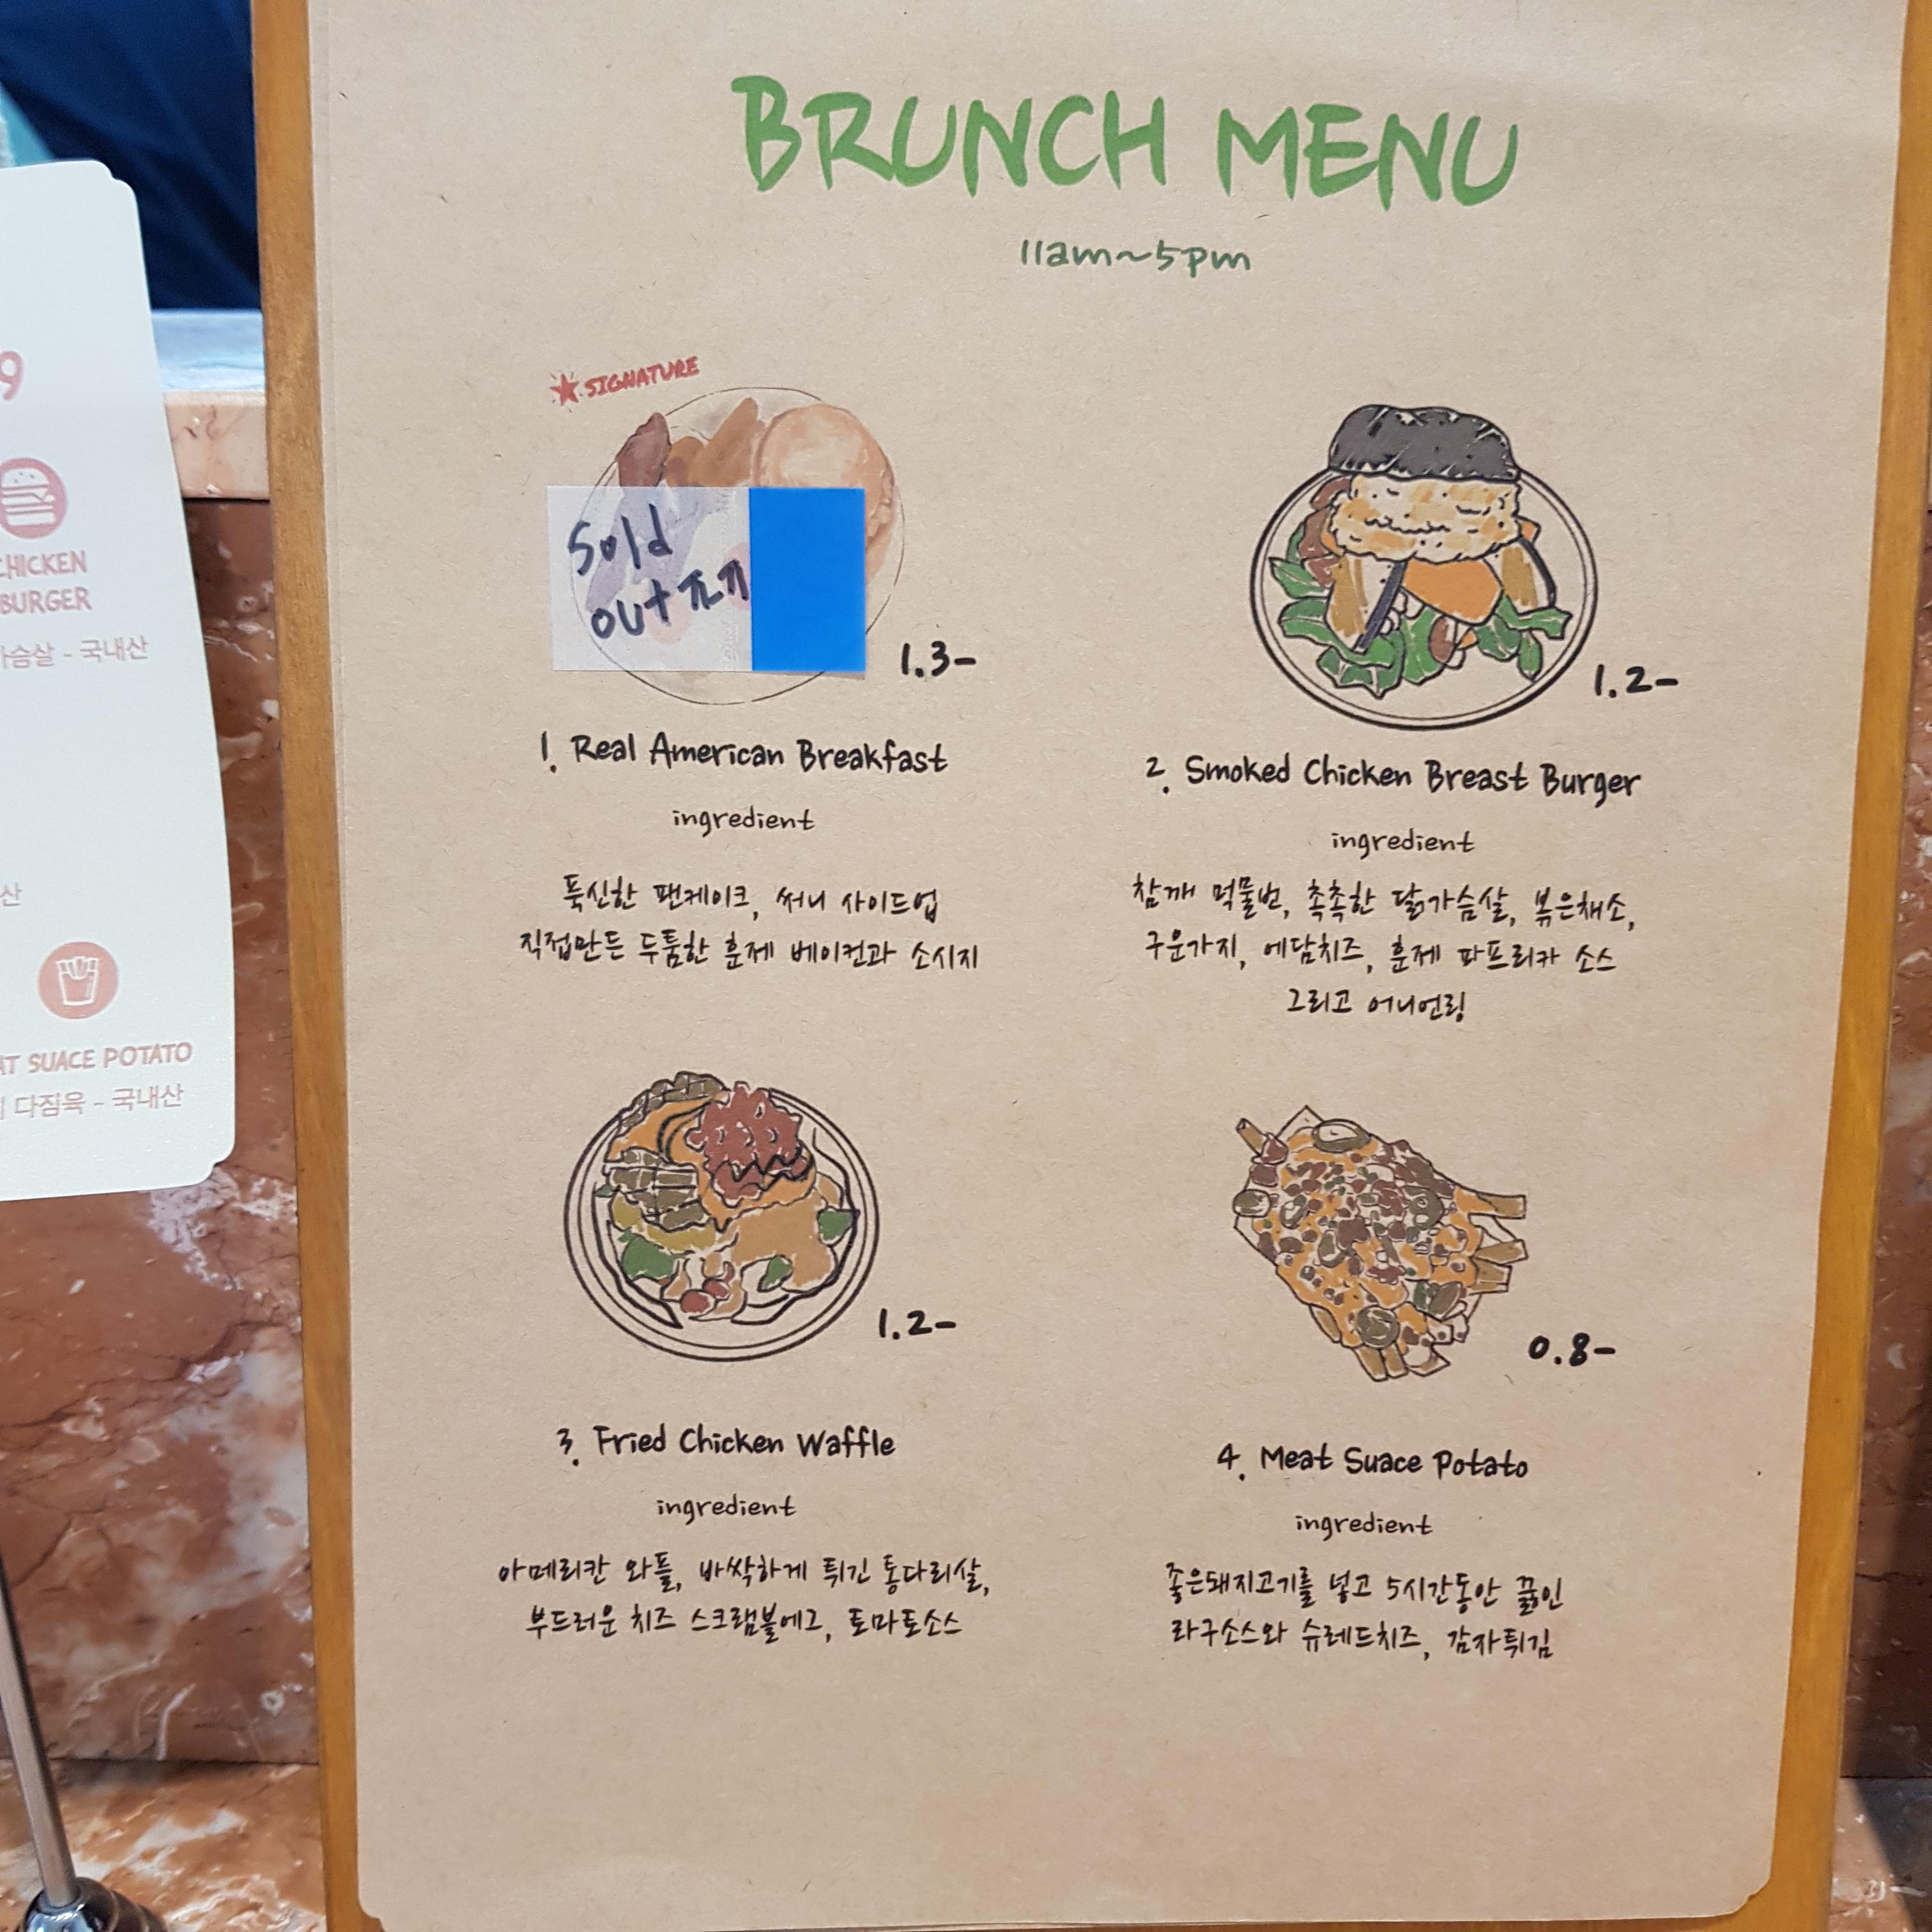 BRUNCH MENU
11am~5pm
★SIGNATURE
Sold
out ㅠㅠ
1.3-
1. Real American Breakfast
ingredient
푹신한 팬케이크, 써니 사이드업
직접만든 두툼한 훈제 베이컨과 소시지
1.2-
2. Smoked Chicken Breast Burger
ingredient
참깨 먹물번, 촉촉한 닭가슴살, 볶은채소,
구운가지, 에담치즈, 훈제 파프리카 소스
그리고 어니언링
1.2-
3. Fried Chicken Waffle
ingredient
아메리칸 와플, 바싹하게 튀긴 통다리살,
부드러운 치즈 스크램블에그, 토마토소스
0.8-
4. Meat Suace Potato
ingredient
좋은돼지고기를 넣고 5시간동안 끓인
라구소스와 슈레드치즈, 감자튀김
9
CHICKEN
BURGER
가슴살 - 국내산
산
AT SUACE POTATO
다짐육 - 국내산